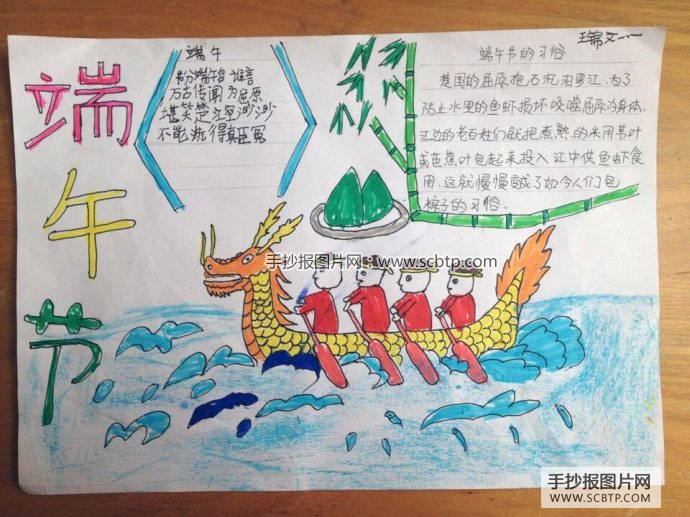 端
午
节
端午
万古传闻为屈原
堪笑楚江空渺渺
不能洗得直臣冤
端午节的习俗
楚国的屈原抱石沉汨罗江,为了
防止水里的鱼虾损坏咬噬屈原的身体,
江边的老百姓们就把煮熟的米用苇叶
或芭蕉叶包起来投入江中供鱼虾食
用,这就慢慢变成了如今人们包
粽子的习俗.
手抄报图片网:www.scbtp.com
手抄报图片网
WWW.SCBTP.COM